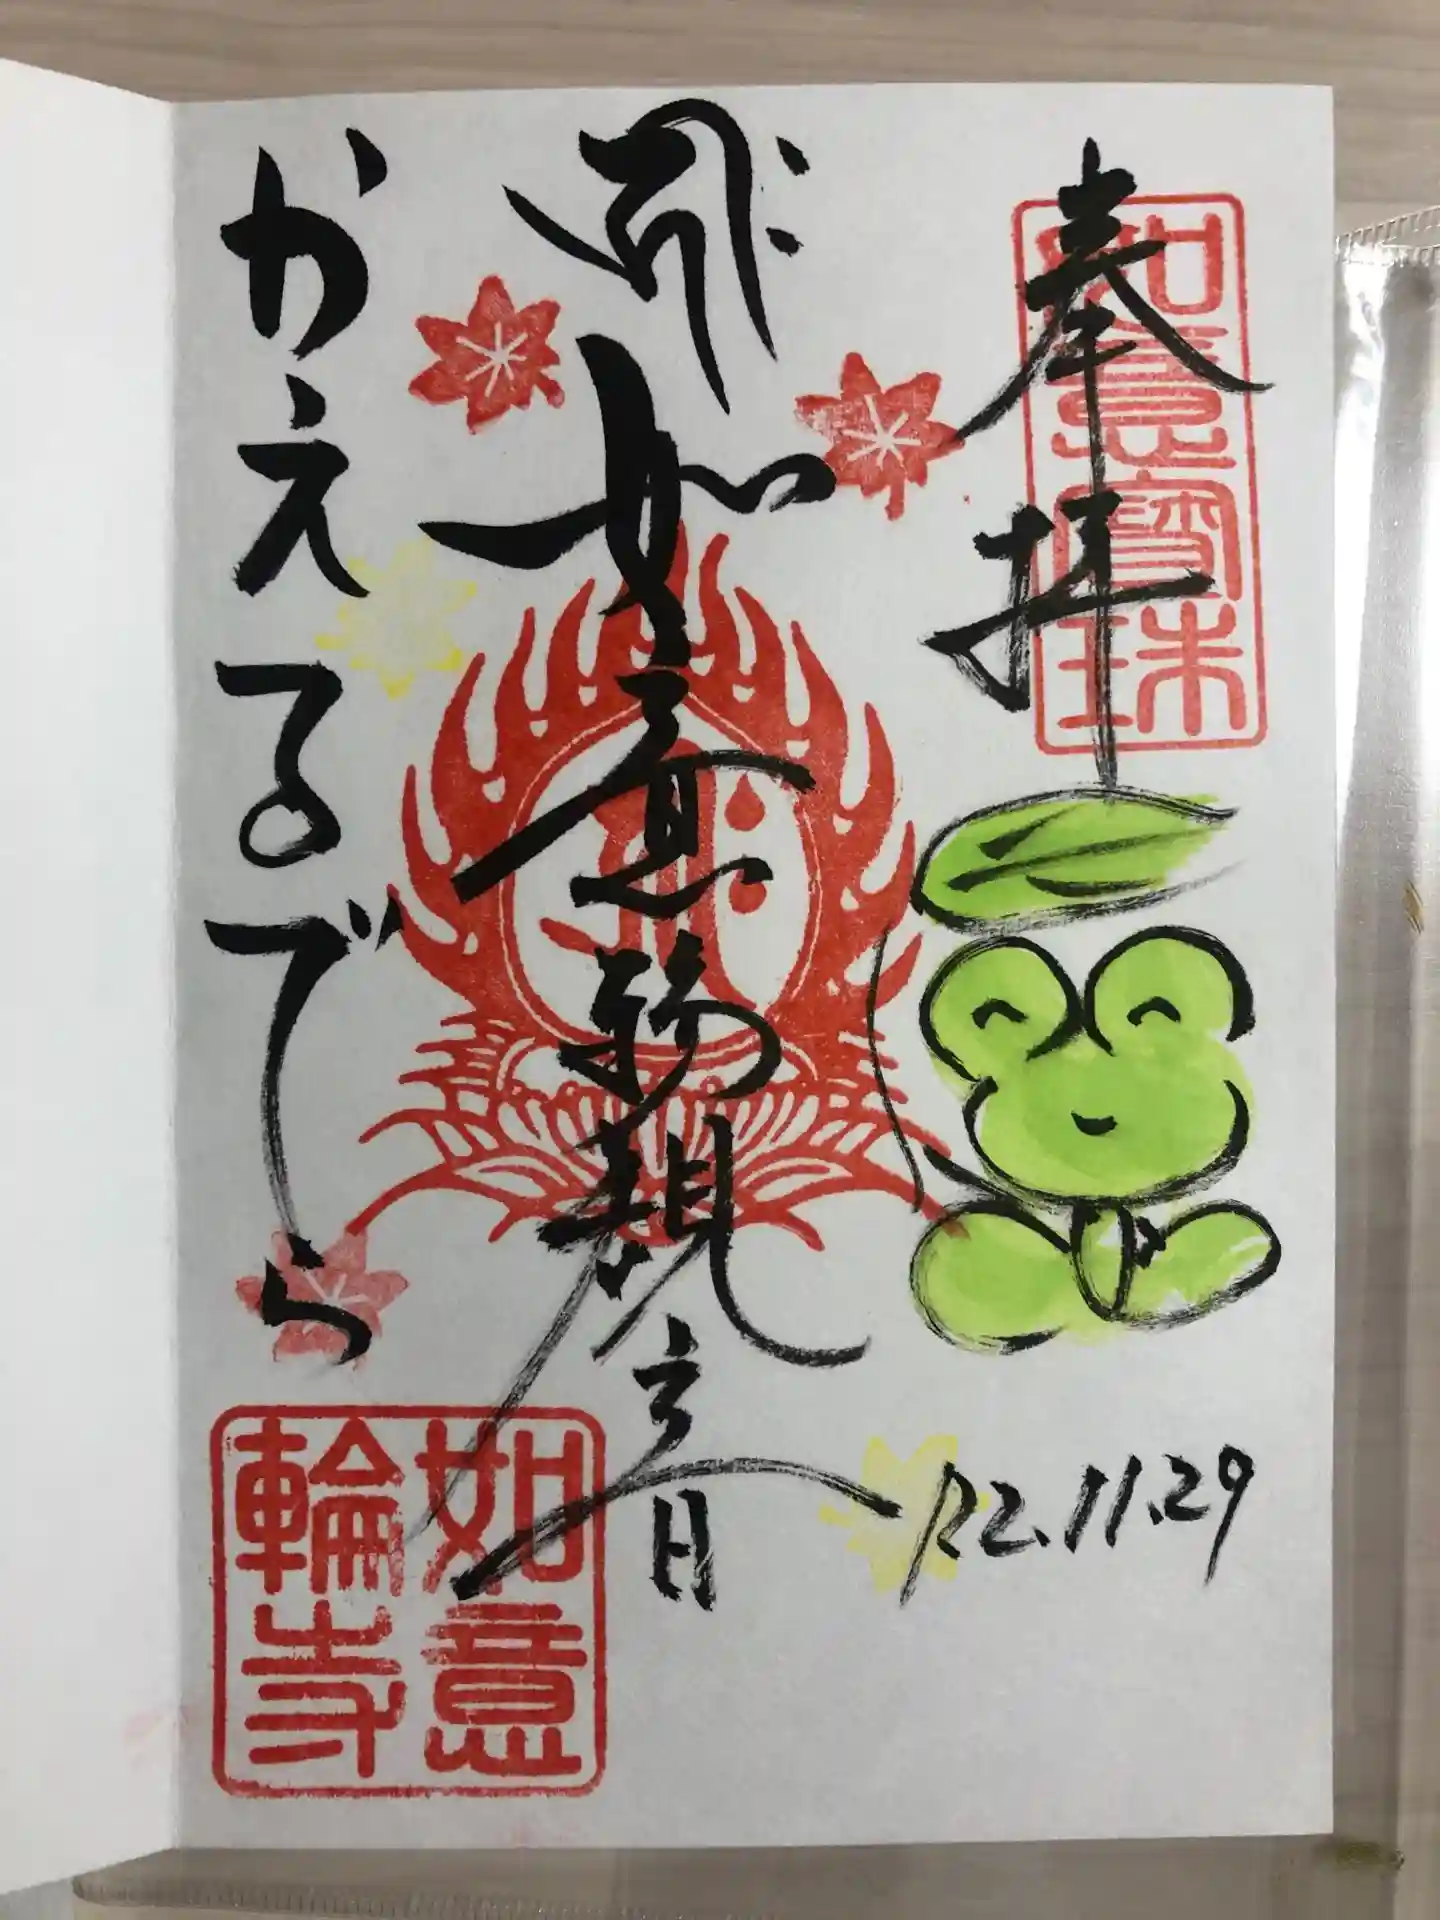 奉拝
如意寶珠
如意輪観音
かえるでら
如意
輪寺
R2.11.29